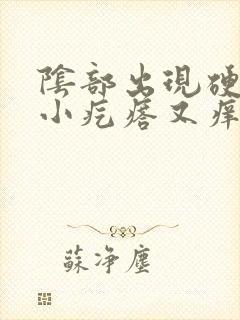 陰部出現硬
小疙瘩又痒
蘇净塵